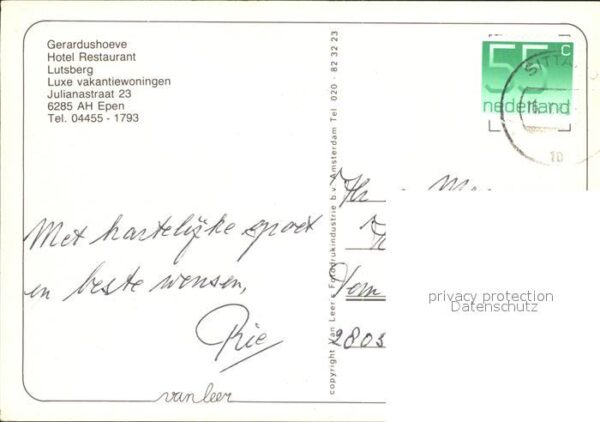 Gerardushoeve
Hotel Restaurant
Lutsberg
Luxe vakantiewoningen
Julianastraat 23
6285 AH Epen
Tel. 04455 - 1793
55 c
nederland
SITTA
10
copyright Van Leer's Fotodrukindustrie b.v. Amsterdam Tel 020 - 82 32 23
Met hartelijke groet
en beste wensen,
Rie
van leer
2803
privacy protection
Datenschutz